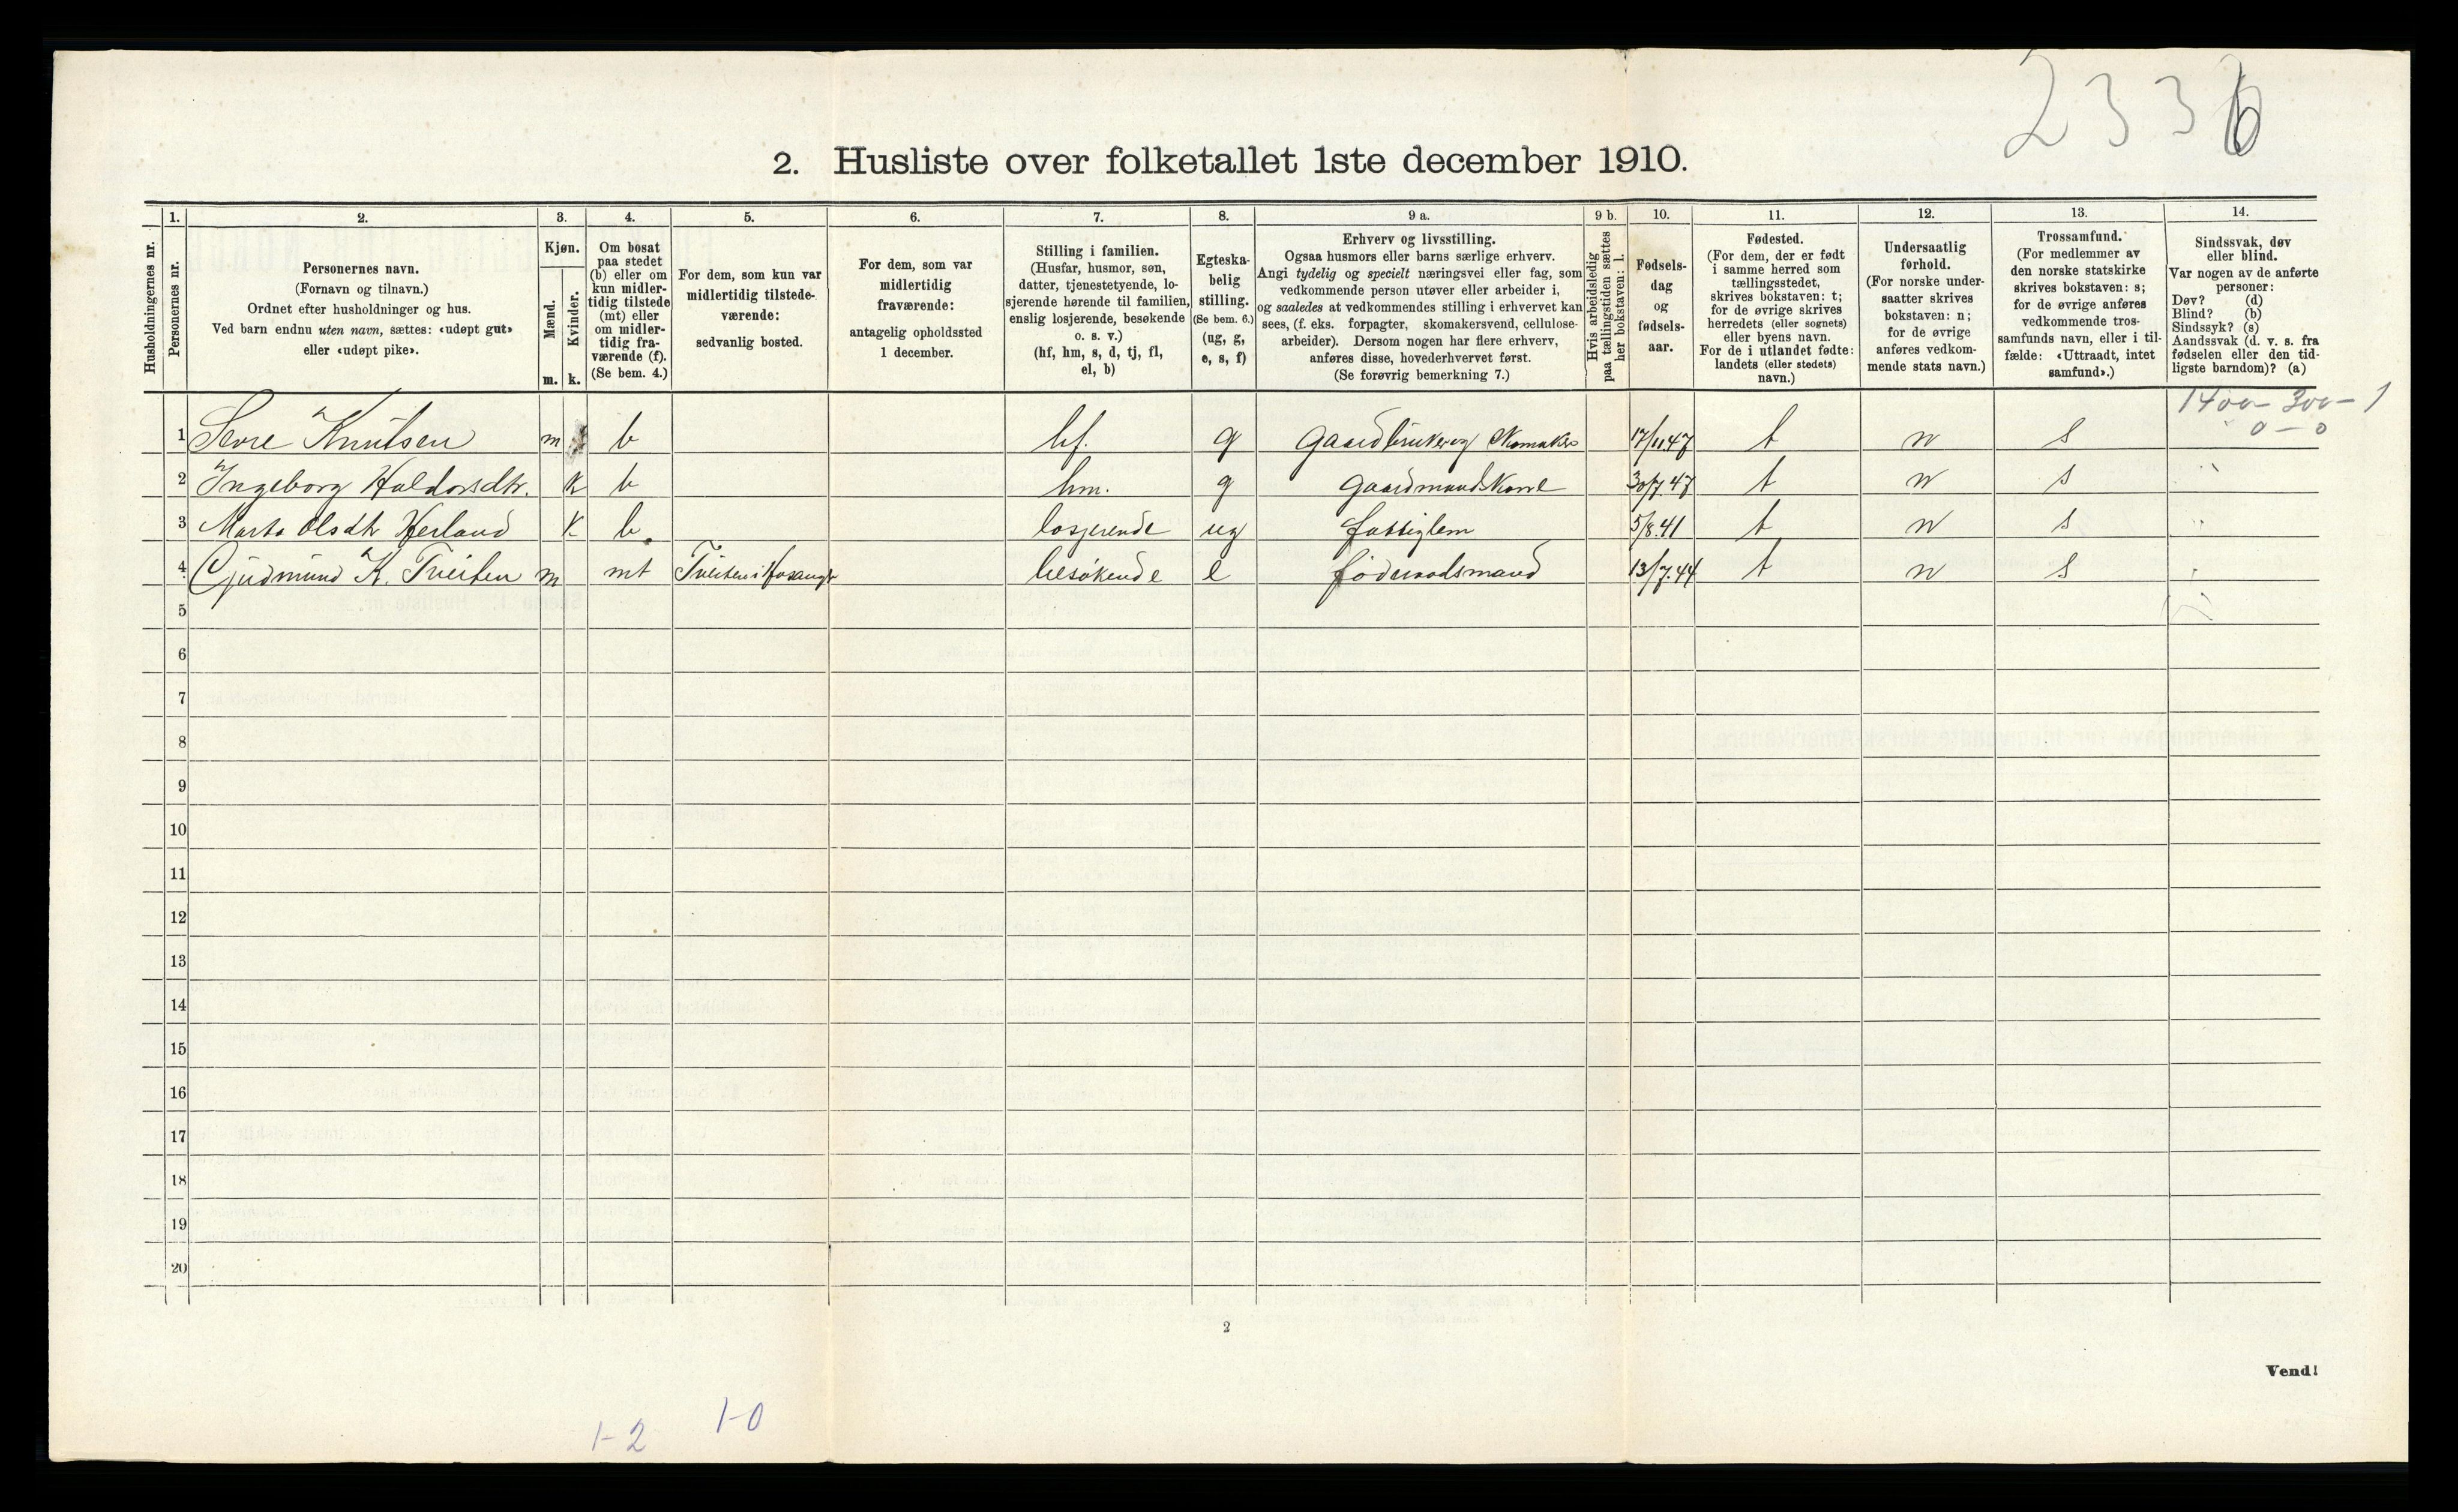 2336
2. Husliste over folketallet 1ste december 1910.
Husholdningernes nr.
1.
Personernes nr.
2.
Personernes navn.
(Fornavn og tilnavn.)
Ordnet efter husholdninger og hus.
Ved barn endnu uten navn, sættes: «udøpt gut»
eller «udøpt pike».
3.
Kjøn.
Mænd.
Kvinder.
m. k.
4.
Om bosat
paa stedet
(b) eller om
kun midler-
tidig tilstede
(mt) eller
om midler-
tidig fra-
værende (f).
(Se bem. 4.)
5.
For dem, som kun var
midlertidig tilstede-
værende:
sedvanlig bosted.
6.
For dem, som var
midlertidig
fraværende:
antagelig opholdssted
1 december.
7.
Stilling i familien.
(Husfar, husmor, søn,
datter, tjenestetyende, lo-
sjerende hørende til familien,
enslig losjerende, besøkende
o. s. v.)
(hf, hm, s, d, tj, fl,
el, b)
8.
Egteska-
belig
stilling.
(Se bem. 6.)
(ug, g,
e, s, f)
9 a.
Erhverv og livsstilling.
Ogsaa husmors eller barns særlige erhverv.
Angi tydelig og specielt næringsvei eller fag, som
vedkommende person utøver eller arbeider i,
og saaledes at vedkommendes stilling i erhvervet kan
sees, (f. eks. forpagter, skomakersvend, cellulose-
arbeider). Dersom nogen har flere erhverv,
anføres disse, hovederhvervet først.
(Se forøvrig bemerkning 7.)
9 b.
Hvis arbeidsledig
paa tællingstiden sættes
her bokstaven: l.
10.
Fødsels-
dag
og
fødsels-
aar.
11.
Fødested.
(For dem, der er født
i samme herred som
tællingsstedet,
skrives bokstaven: t;
for de øvrige skrives
herredets (eller sognets)
eller byens navn.
For de i utlandet fødte:
landets (eller stedets)
navn.)
12.
Undersaatlig
forhold.
(For norske under-
saatter skrives
bokstaven: n;
for de øvrige
anføres vedkom-
mende stats navn.)
13.
Trossamfund.
(For medlemmer av
den norske statskirke
skrives bokstaven: s;
for de øvrige anføres
vedkommende tros-
samfunds navn, eller i til-
fælde: «Uttraadt, intet
samfund».)
14.
Sindssvak, døv
eller blind.
Var nogen av de anførte
personer:
Døv? (d)
Blind? (b)
Sindssyk? (s)
Aandssvak (d. v. s. fra
fødselen eller den tid-
ligste barndom)? (a)
1400 - 300 - 1
0 - 0
1 Sjure Knutsen m b hf. g Gaardbruker og Skomaker 17/11.47 t n s
2 Ingeborg Haldorsdtr. k b hm. g Gaardmandskone 30/7.47 t n s
3 Marta Olsdtr Herland k b losjerende ug fattiglem 5/8.41 t n s
4 Gudmund K. Tveiten m mt Tveiten i besøkende e föderaadsmand 13/7.44 t n s
5
6
7
8
9
10
11
12
13
14
15
16
17
18
19
20
2
Vend!
1-2 1-0